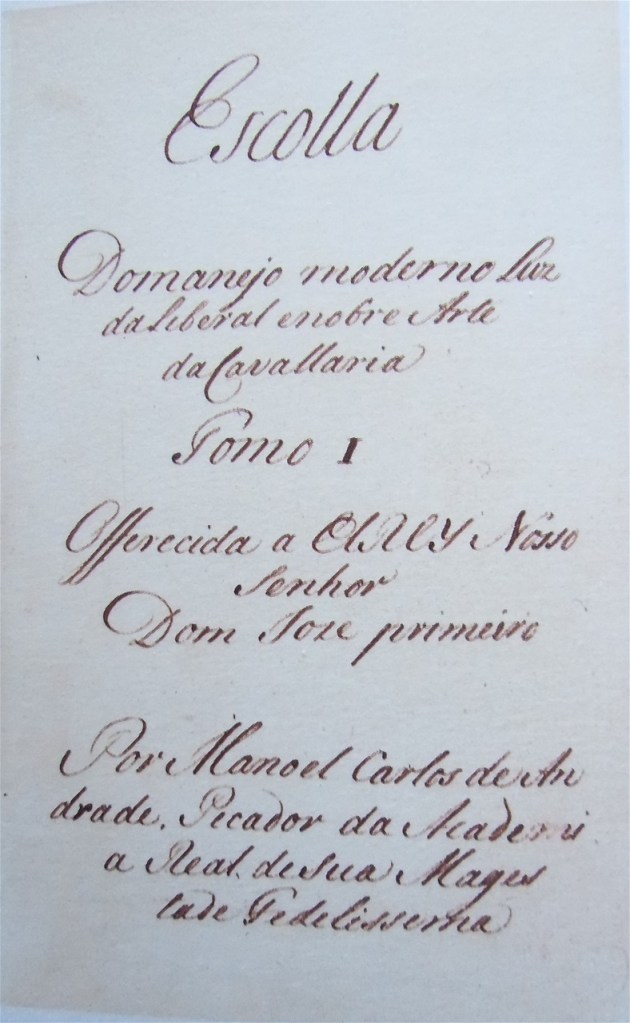 Escolla
Domanejo moderno Luz
da Liberal enobre Arte
da Cavallaria
Tomo I
Offerecida a ElREY Nosso
Senhor
Dom Joze primeiro
Por Manoel Carlos de An
drade, Picador da Academi
a Real de Sua Mages
tade Fedelissema